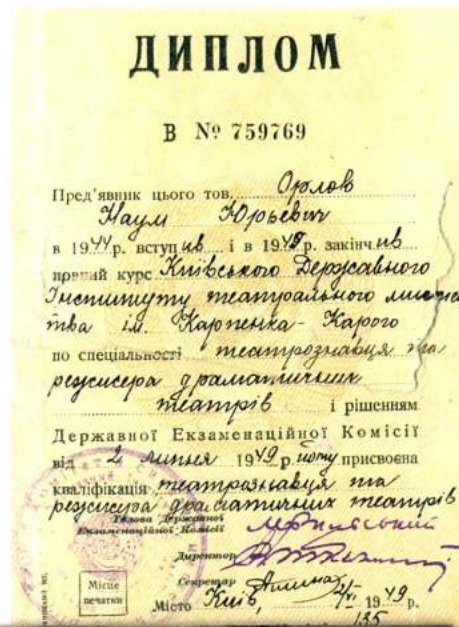 ДИПЛОМ
В № 759769
Пред'явник цього тов. Орлов
Наум Юрьевич
в 1944 р. вступив і в 1949 р. закінчив
повний курс Київського Державного
Інституту театрального мистец
тва ім. Карпенка-Карого
по спеціальності театрознавця та
режисера драматичних
театрів і рішенням
Державної Екзаменаційної Комісії
від 2 липня 1949 р. йому присвоєна
кваліфікація театрознавця та
режисера драматичних театрів
Голова Державної
Екзаменаційної Комісії
Директор
Секретар
Місце
печатки
Місто Київ, 1949 р.
135